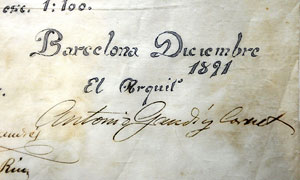 esc. 1:100.
Barcelona Diciembre
1891
El Arquito
Antonio Gaudí y Cornet
Riu